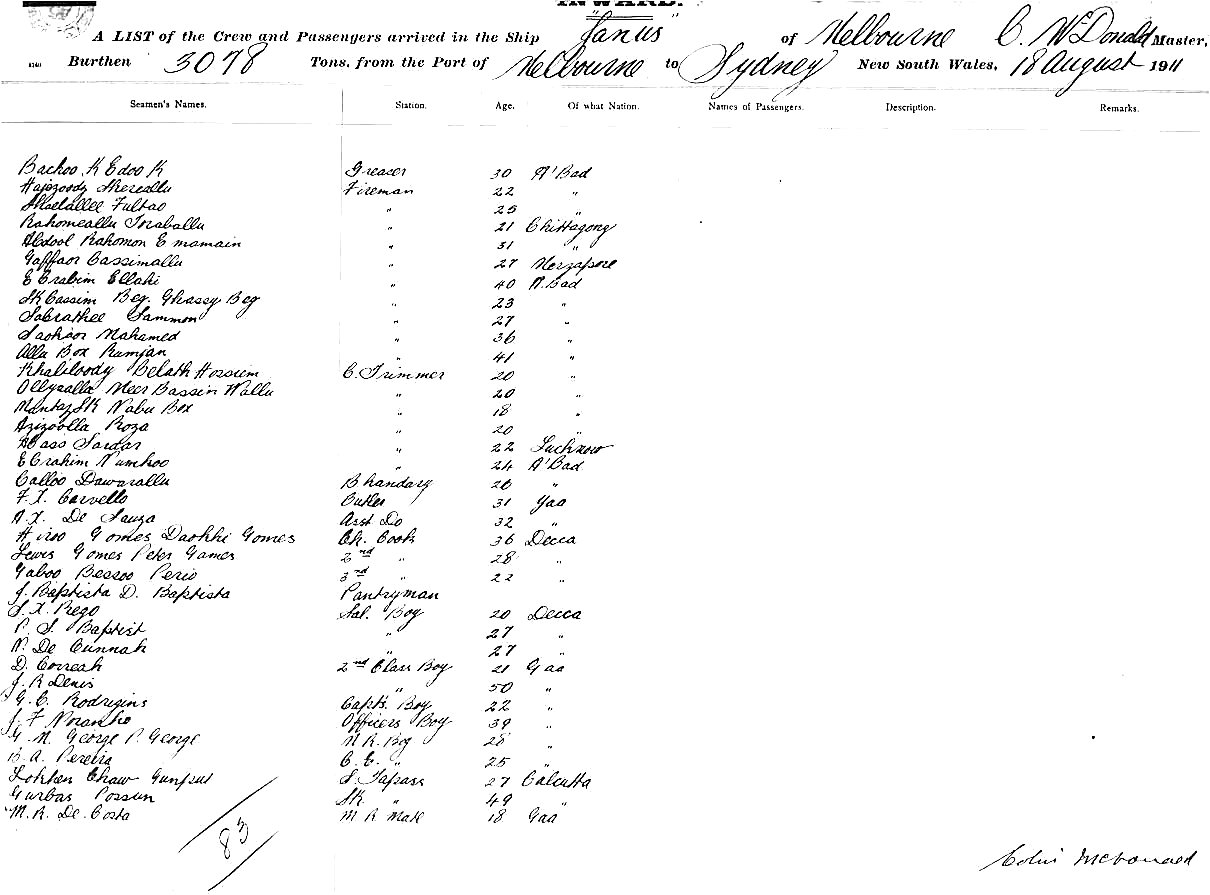 INWARD.
A LIST of the Crew and Passengers arrived in the Ship "Janus" of Melbourne C. McDonald Master,
Burthen 3078 Tons, from the Port of Melbourne to Sydney New South Wales, 18 August 1911
Seamen's Names. Station. Age. Of what Nation. Names of Passengers. Description. Remarks.
Bachoo K Edoo K Greaser 30 A'Bad
Fireman 22 "
Fultao " 25 "
Rahomeallu " 21 Chittagong
Abdool Rahomon Emamain " 31 "
Gaffaor Cassimallu " 27 Merzapore
E Erabim Ellahi " 40 A.Bad
SK Cassim Beg. Ghassy Beg " 23 "
Sabrathee Sammon " 27 "
Mahamed " 36 "
Allu Box Ramjan " 41 "
Khaliloody Belath Hossiem C. Trimmer 20 "
Ollyralla Meer Bassin Wallu " 20 "
Mantaz SK Nabu Box " 18 "
Azizoolla Roza " 20 "
Sardar " 22 Lucknow
Ebrahim Numkoo " 24 A'Bad
Calloo Dawarallu Bhandary 26 "
F. X. Carvello Butler 31 Gaa
A. X. De Sauza Asst Do 32 "
Hiroo Gomes Daokhi Gomes Ch. Cook 36 Decca
Lewis Gomes Peter Games 2nd " 28 "
Gaboo Bessoo Perio 3rd " 22 "
J. Baptista D. Baptista Pantryman
S. X. Rego Sal. Boy 20 Decca
P. S. Baptist " 27 "
N. De Cunnah " 27 "
D. Correah 2nd Class Boy 21 Gaa
J. R Denis " 50 "
G. C. Rodrigins Capts. Boy 22 "
J. F Noranho Officers Boy 39 "
G. M. George P. George M.R. Boy 28 "
B. A. Pereira C. E. " 25 "
Lokhen Chaw Gunput S. Tapass 27 Calcutta
Gurbas Possun SK " 49 "
M. R. De Costa M R Mate 18 Gaa
83
Colin McDonald